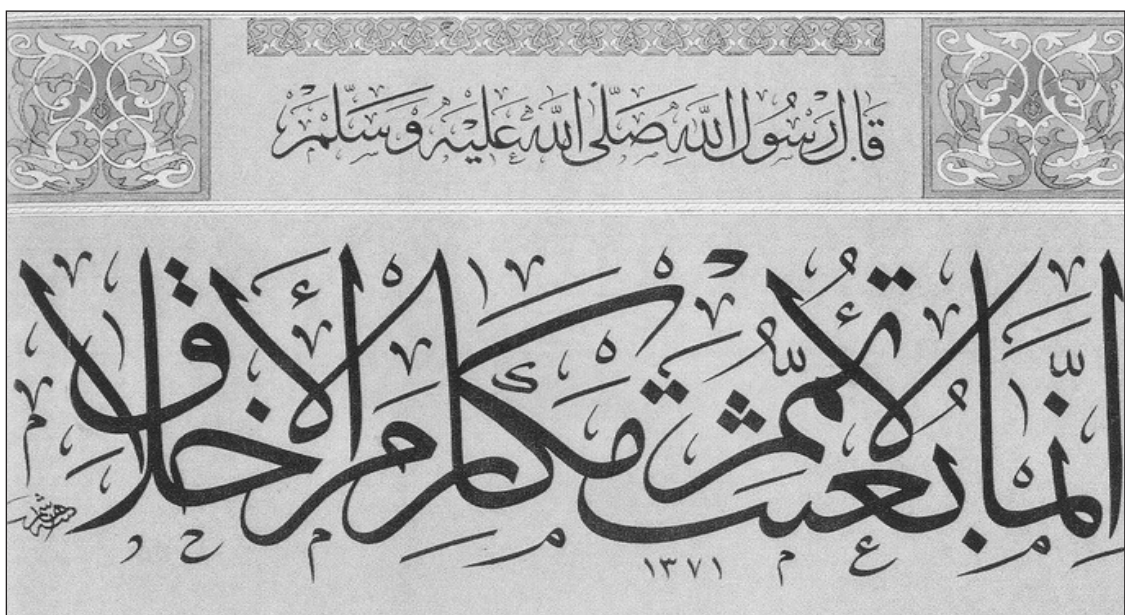 قَالَ رَسُولُ اللَّهِ صَلَّى اللَّهُ عَلَيْهِ وَسَلَّمَ
إِنَّمَا بُعِثْتُ لِأُتَمِّمَ مَكَارِمَ الْأَخْلَاقِ
١٣٧١